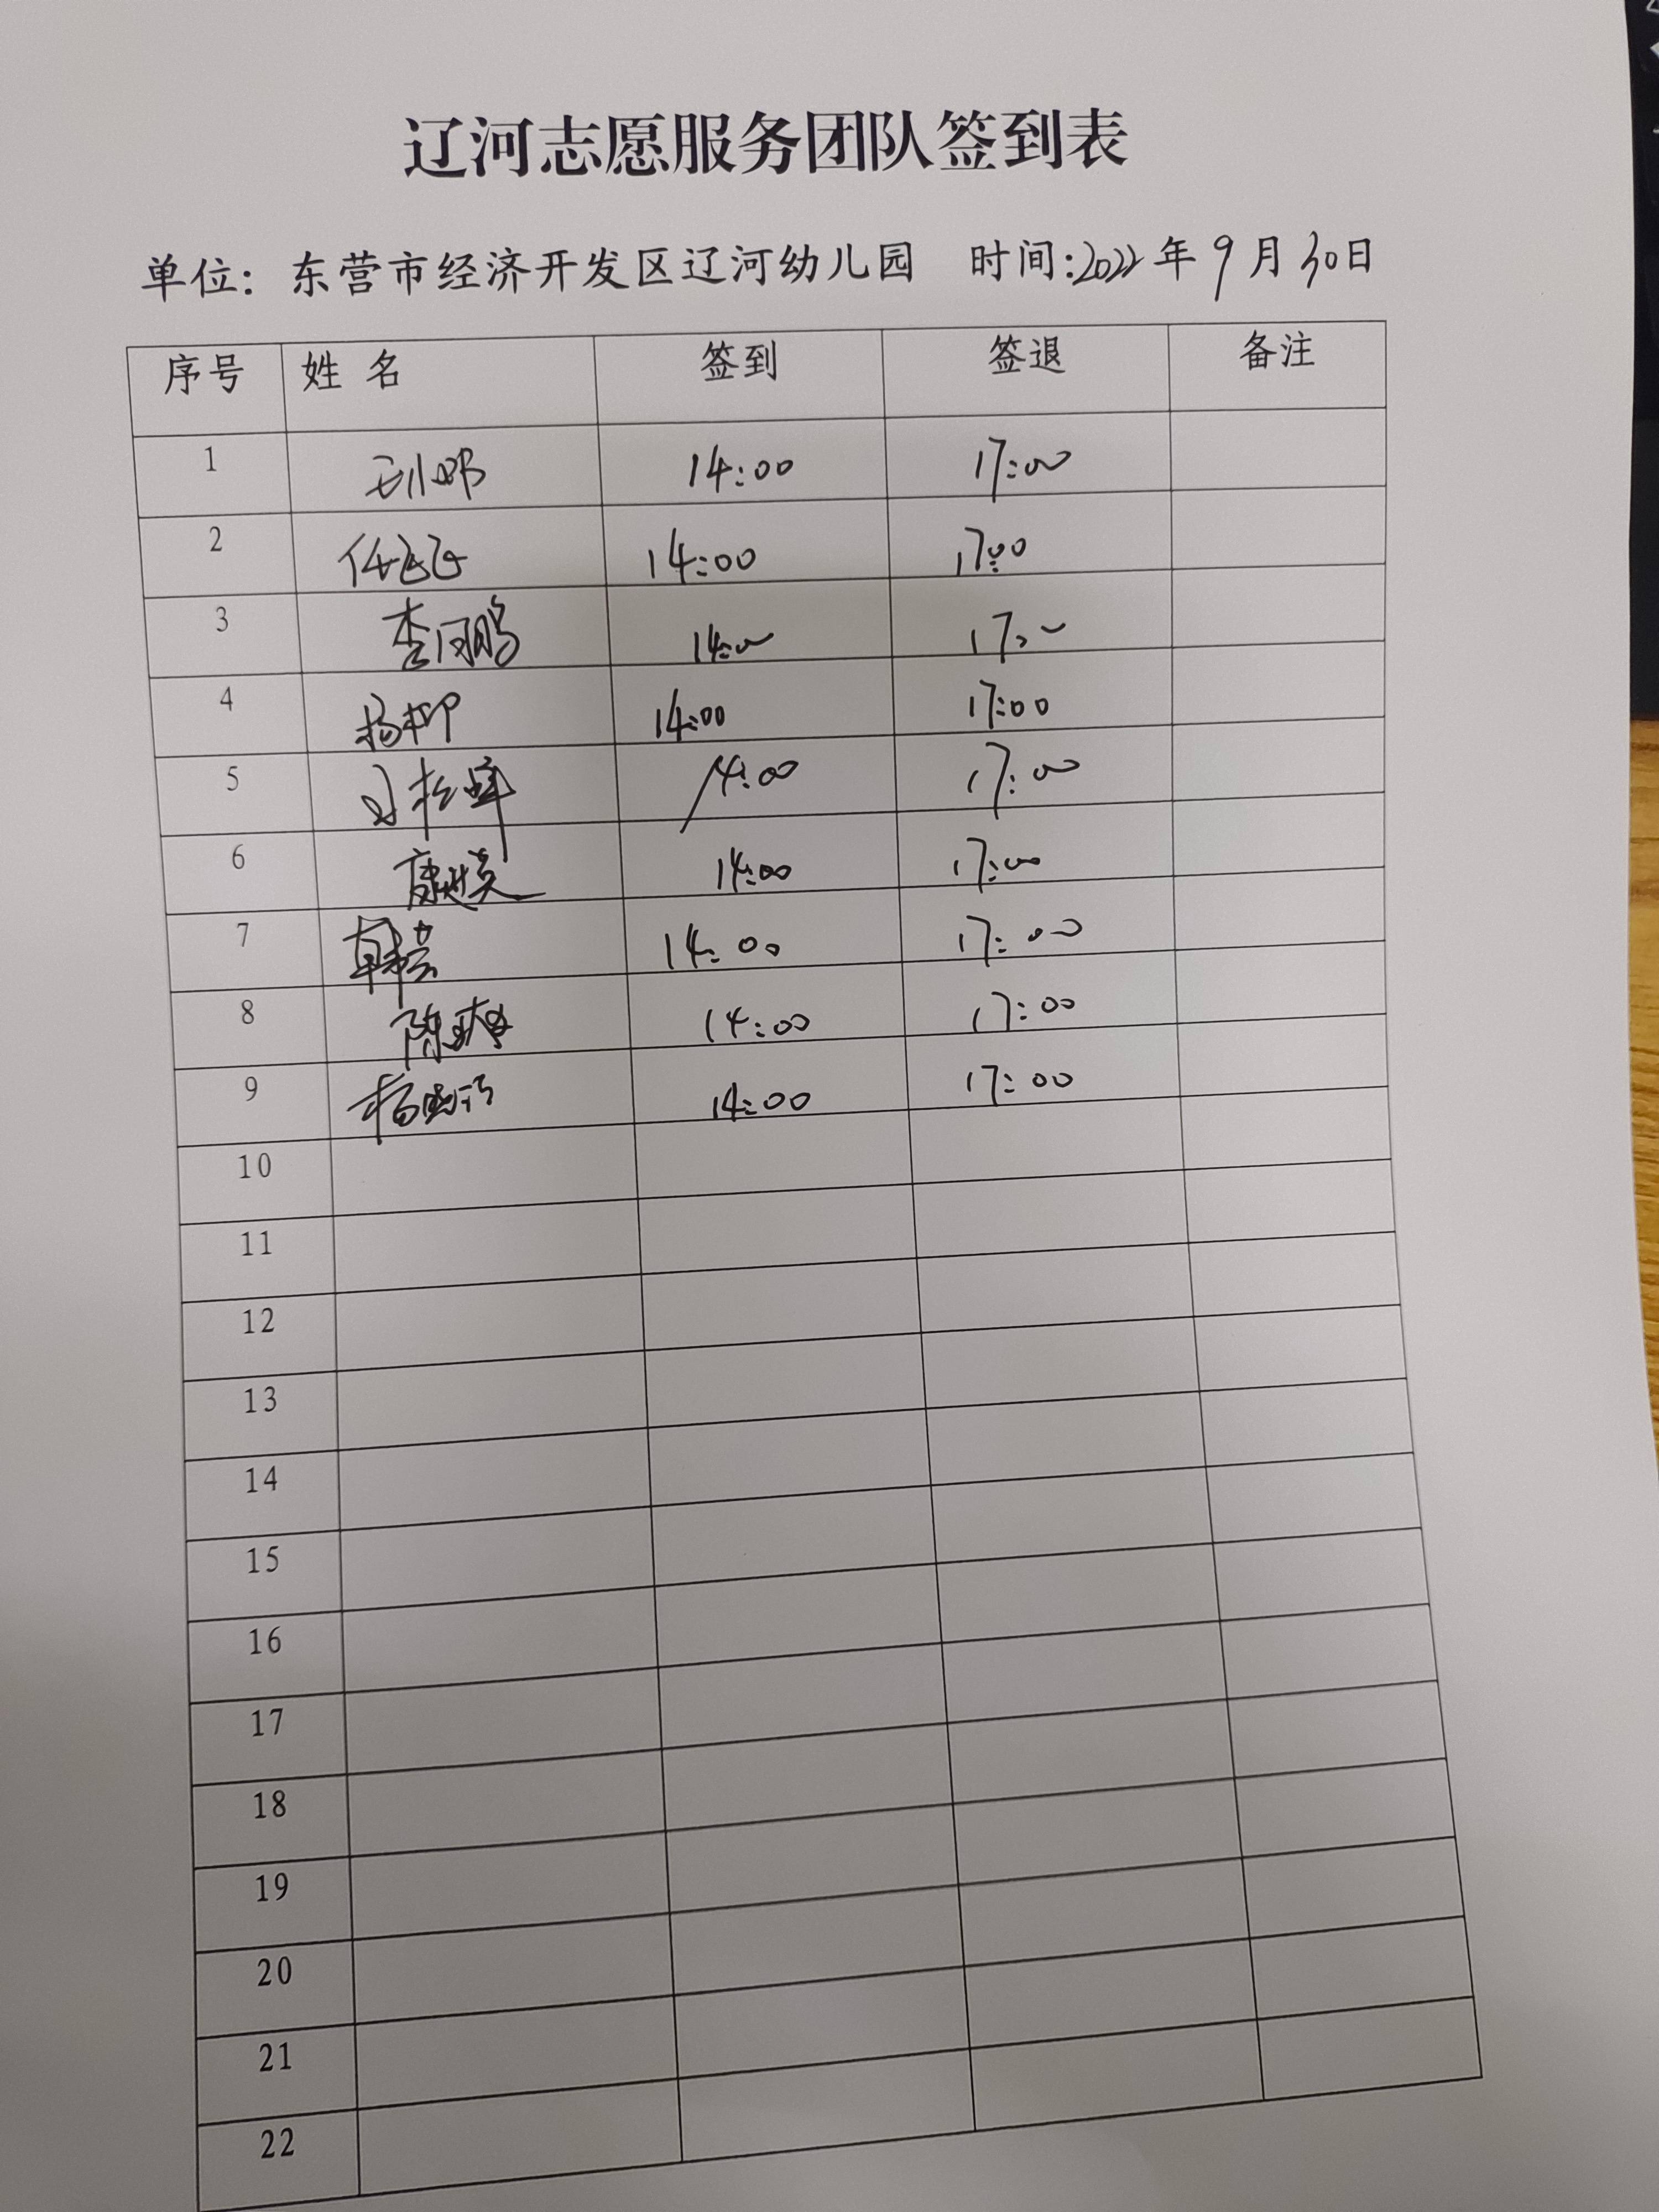 辽河志愿服务团队签到表
单位：东营市经济开发区辽河幼儿园 时间:2022年9月30日
序号 姓 名 签到 签退 备注
1 14:00 17:00
2 任飞飞 14:00 17:00
3 14:00 17:00
4 杨柳 14:00 17:00
5 14:00 17:00
6 14:00 17:00
7 韩芸 14:00 17:00
8 14:00 17:00
9 14:00 17:00
10
11
12
13
14
15
16
17
18
19
20
21
22